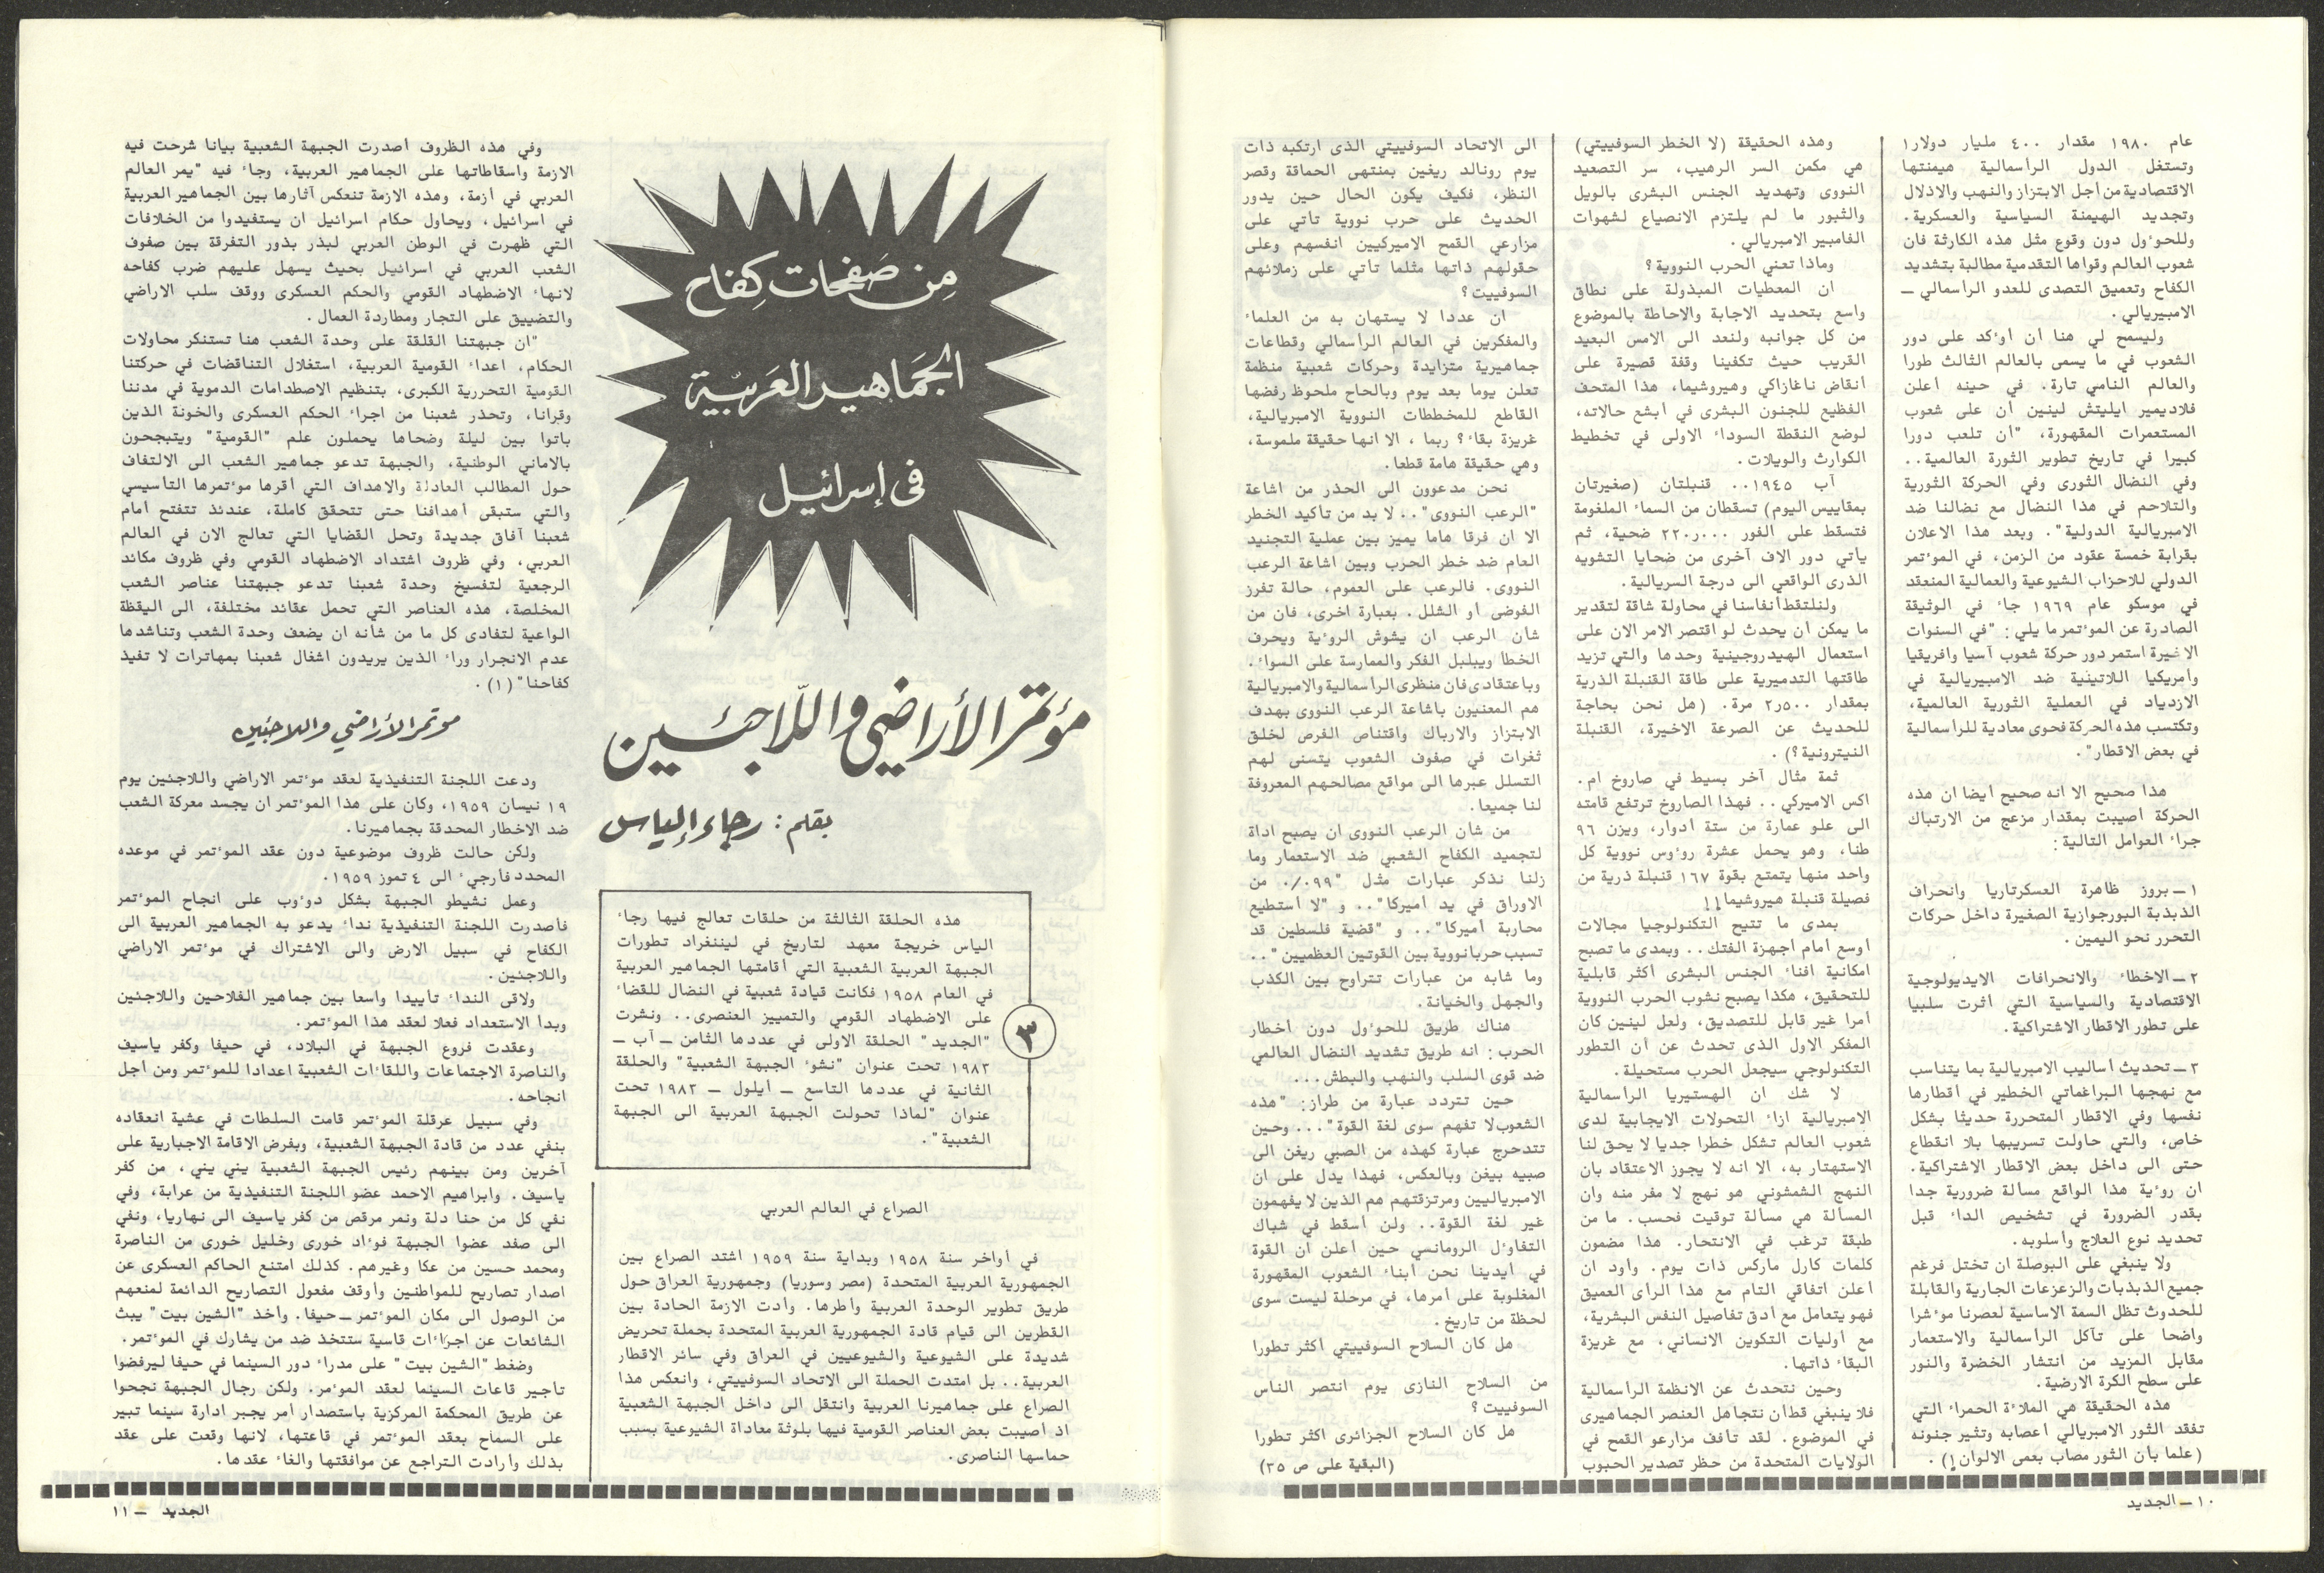 عام ١٩٨٠ مقدار ٤٠٠ مليار دولار١
وتستغل الدول الرأسمالية هيمنتها
الاقتصادية من أجل الابتزاز والنهب والاذلال
وتجديد الهيمنة السياسية والعسكرية.
وللحوءول دون وقوع مثل هذه الكارثة فان
شعوب العالم وقواها التقدمية مطالبة بتشديد
الكفاح وتعميق التصدى للعدو الرأسمالي ــ
الامبيريالي.
وليسمح لي هنا أن أوءكد على دور
الشعوب في ما يسمى بالعالم الثالث طورا
والعالم النامي تارة. في حينه أعلن
فلاديمير ايليتش لينين أن على شعوب
المستعمرات المقهورة، "أن تلعب دورا
كبيرا في تاريخ تطوير الثورة العالمية..
وفي النضال الثورى وفي الحركة الثورية
والتلاحم في هذا النضال مع نضالنا ضد
الامبريالية الدولية". وبعد هذا الاعلان
بقرابة خمسة عقود من الزمن، في الموءتمر
الدولي للاحزاب الشيوعية والعمالية المنعقد
في موسكو عام ١٩٦٩ جاء في الوثيقة
الصادرة عن الموءتمر ما يلي: "في السنوات
الاخيرة استمر دور حركة شعوب آسيا وافريقيا
وأمريكيا اللاتينية ضد الامبيريالية في
الازدياد في العملية الثورية العالمية،
وتكتسب هذه الحركة فحوى معادية للرأسمالية
في بعض الاقطار".
هذا صحيح الا انه صحيح أيضا ان هذه
الحركة أصيبت بمقدار مزعج من الارتباك
جراء العوامل التالية:
١ــ بروز ظاهرة العسكرتاريا وانحراف
الذبذبة البورجوازية الصغيرة داخل حركات
التحرر نحو اليمين.
٢ــ الاخطاء والانحرافات الايديولوجية
الاقتصادية والسياسية التي أثرت سلبيا
على تطور الاقطار الاشتراكية.
٣ــ تحديث أساليب الامبريالية بما يتناسب
مع نهجها البراغماتي الخطير في أقطارها
نفسها وفي الاقطار المتحررة حديثا بشكل
خاص، والتي حاولت تسريبها بلا انقطاع
حتى الى داخل بعض الاقطار الاشتراكية.
ان روءية هذا الواقع مسألة ضرورية جدا
بقدر الضرورة في تشخيص الداء قبل
تحديد نوع العلاج وأسلوبه.
ولا ينبغي على البوصلة ان تختل فرغم
جميع الذبذبات والزعزعات الجارية والقابلة
للحدوث تظل السمة الاساسية لعصرنا موءشرا
واضحا على تآكل الرأسمالية والاستعمار
مقابل المزيد من انتشار الخضرة والنور
على سطح الكرة الارضية.
هذه الحقيقة هي الملاءة الحمراء التي
تفقد الثور الامبريالي أعصابه وتثير جنونه
(علما بأن الثور مصاب بعمى الالوان!).
وهذه الحقيقة (لا الخطر السوفييتي)
هي مكمن السر الرهيب، سر التصعيد
النووى وتهديد الجنس البشرى بالويل
والثبور ما لم يلتزم الانصياع لشهوات
الفامبير الامبريالي.
وماذا تعني الحرب النووية؟
ان المعطيات المبذولة على نطاق
واسع بتحديد الاجابة والاحاطة بالموضوع
من كل جوانبه ولنعد الى الامس البعيد
القريب حيث تكفينا وقفة قصيرة على
أنقاض ناغازاكي وهيروشيما، هذا المتحف
الفظيع للجنون البشرى في أبشع حالاته،
لوضع النقطة السوداء الاولى في تخطيط
الكوارث والويلات.
آب ١٩٤٥.. قنبلتان (صغيرتان
بمقاييس اليوم) تسقطان من السماء الملغومة
فتسقط على الفور ٢٢٠ر٠٠٠ ضحية، ثم
يأتي دور الاف أخرى من ضحايا التشويه
الذرى الواقعي الى درجة السريالية.
ولنلتقط أنفاسنا في محاولة شاقة لتقدير
ما يمكن أن يحدث لو اقتصر الامر الان على
استعمال الهيدروجينية وحدها والتي تزيد
طاقتها التدميرية على طاقة القنبلة الذرية
بمقدار ٢ر٥٠٠ مرة. (هل نحن بحاجة
للحديث عن الصرعة الاخيرة، القنبلة
النيترونية؟).
ثمة مثال آخر بسيط في صاروخ ام.
اكس الاميركي.. فهذا الصاروخ ترتفع قامته
الى علو عمارة من ستة أدوار، ويزن ٩٦
طنا، وهو يحمل عشرة روءوس نووية كل
واحد منها يتمتع بقوة ١٦٧ قنبلة ذرية من
فصيلة قنبلة هيروشيما!!
بمدى ما تتيح التكنولوجيا مجالات
أوسع أمام أجهزة الفتك.. وبمدى ما تصبح
امكانية افناء الجنس البشرى أكثر قابلية
للتحقيق، هكذا يصبح نشوب الحرب النووية
أمرا غير قابل للتصديق، ولعل لينين كان
المفكر الاول الذى تحدث عن أن التطور
التكنولوجي سيجعل الحرب مستحيلة.
لا شك ان الهستيريا الرأسمالية
الامبريالية ازاء التحولات الايجابية لدى
شعوب العالم تشكل خطرا جديا لا يحق لنا
الاستهتار به، الا انه لا يجوز الاعتقاد بان
النهج الشمشوني هو نهج لا مفر منه وان
المسألة هي مسألة توقيت فحسب. ما من
طبقة ترغب في الانتحار. هذا مضمون
كلمات كارل ماركس ذات يوم. وأود ان
أعلن اتفاقي التام مع هذا الرأى العميق
فهو يتعامل مع أدق تفاصيل النفس البشرية،
مع أوليات التكوين الانساني، مع غريزة
البقاء ذاتها.
وحين نتحدث عن الانظمة الرأسمالية
فلا ينبغي قط أن نتجاهل العنصر الجماهيرى
في الموضوع. لقد تأفف مزارعو القمح في
الولايات المتحدة من حظر تصدير الحبوب
الى الاتحاد السوفييتي الذى ارتكبه ذات
يوم رونالد ريغين بمنتهى الحماقة وقصر
النظر، فكيف يكون الحال حين يدور
الحديث على حرب نووية تأتي على
مزارعي القمح الاميركيين انفسهم وعلى
حقولهم ذاتها مثلما تأتي على زملائهم
السوفييت؟
ان عددا لا يستهان به من العلماء
والمفكرين في العالم الرأسمالي وقطاعات
جماهيرية متزايدة وحركات شعبية منظمة
تعلن يوما بعد يوم وبالحاح ملحوظ رفضها
القاطع للمخططات النووية الامبريالية،
غريزة بقاء؟ ربما، الا انها حقيقة ملموسة،
وهي حقيقة هامة قطعا.
نحن مدعوون الى الحذر من اشاعة
"الرعب النووى".. لا بد من تأكيد الخطر
الا ان فرقا هاما يميز بين عملية التجنيد
العام ضد خطر الحرب وبين اشاعة الرعب
النووى. فالرعب على العموم، حالة تفرز
الفوضى أو الشلل. بعبارة اخرى، فان من
شأن الرعب ان يشوش الروءية ويحرف
الخطأ ويبلبل الفكر والممارسة على السواء.
وباعتقادى فان منظرى الرأسمالية والامبريالية
هم المعنيون باشاعة الرعب النووى بهدف
الابتزاز والارباك واقتناص الفرص لخلق
ثغرات في صفوف الشعوب يتسنى لهم
التسلل عبرها الى مواقع مصالحهم المعروفة
لنا جميعا.
من شأن الرعب النووى ان يصبح اداة
لتجميد الكفاح الشعبي ضد الاستعمار وما
زلنا نذكر عبارات مثل "٩٩٠/٠ من
الاوراق في يد أميركا".. و "لا أستطيع
محاربة أميركا".. و "قضية فلسطين قد
تسبب حربا نووية بين القوتين العظميين"..
وما شابه من عبارات تتراوح بين الكذب
والجهل والخيانة.
هناك طريق للحوءول دون أخطار
الحرب: انه طريق تشديد النضال العالمي
ضد قوى السلب والنهب والبطش...
حين تتردد عبارة من طراز: "هذه
الشعوب لا تفهم سوى لغة القوة"... وحين
تتدحرج عبارة كهذه من الصبي ريغن الى
صبيه بيغن وبالعكس، فهذا يدل على ان
الامبرياليين ومرتزقتهم هم الذين لا يفهمون
غير لغة القوة.. ولن أسقط في شباك
التفاوءل الرومانسي حين أعلن أن القوة
في أيدينا نحن أبناء الشعوب المقهورة
المغلوبة على أمرها، في مرحلة ليست سوى
لحظة من تاريخ.
هل كان السلاح السوفييتي أكثر تطورا
من السلاح النازى يوم انتصر الناس
السوفييت؟
هل كان السلاح الجزائرى اكثر تطورا
(البقية على ص ٣٥)
١٠ ــ الجديد
مِن صَفحات كِفاح
الجَماهير العَربيّة
في إسرائيل
مؤتمر الأراضي واللاجئين
بقلم: رجاء إلياس
هذه الحلقة الثالثة من حلقات تعالج فيها رجاء
الياس خريجة معهد لتاريخ في ليننغراد تطورات
الجبهة العربية الشعبية التي أقامتها الجماهير العربية
في العام ١٩٥٨ فكانت قيادة شعبية في النضال للقضاء
على الاضطهاد القومي والتمييز العنصرى.. ونشرت
"الجديد" الحلقة الاولى في عددها الثامن ــ آب ــ
١٩٨٣ تحت عنوان "نشوء الجبهة الشعبية" والحلقة
الثانية في عددها التاسع ــ أيلول ــ ١٩٨٣ تحت
عنوان "لماذا تحولت الجبهة العربية الى الجبهة
الشعبية".
٣
الصراع في العالم العربي
في أواخر سنة ١٩٥٨ وبداية سنة ١٩٥٩ اشتد الصراع بين
الجمهورية العربية المتحدة (مصر وسوريا) وجمهورية العراق حول
طريق تطوير الوحدة العربية وأطرها. وأدت الازمة الحادة بين
القطرين الى قيام قادة الجمهورية العربية المتحدة بحملة تحريض
شديدة على الشيوعية والشيوعيين في العراق وفي سائر الاقطار
العربية.. بل امتدت الحملة الى الاتحاد السوفييتي، وانعكس هذا
الصراع على جماهيرنا العربية وانتقل الى داخل الجبهة الشعبية
اذ أصيبت بعض العناصر القومية فيها بلوثة معاداة الشيوعية بسبب
حماسها الناصرى.
وفي هذه الظروف أصدرت الجبهة الشعبية بيانا شرحت فيه
الازمة واسقاطاتها على الجماهير العربية، وجاء فيه "يمر العالم
العربي في أزمة، وهذه الازمة تنعكس آثارها بين الجماهير العربية
في اسرائيل، ويحاول حكام اسرائيل ان يستفيدوا من الخلافات
التي ظهرت في الوطن العربي لبذر بذور التفرقة بين صفوف
الشعب العربي في اسرائيل بحيث يسهل عليهم ضرب كفاحه
لانهاء الاضطهاد القومي والحكم العسكرى ووقف سلب الاراضي
والتضييق على التجار ومطاردة العمال.
"ان جبهتنا القلقة على وحدة الشعب هنا تستنكر محاولات
الحكام، اعداء القومية العربية، استغلال التناقضات في حركتنا
القومية التحررية الكبرى، بتنظيم الاصطدامات الدموية في مدننا
وقرانا، وتحذر شعبنا من اجراء الحكم العسكرى والخونة الذين
باتوا بين ليلة وضحاها يحملون علم "القومية" ويتبجحون
بالاماني الوطنية، والجبهة تدعو جماهير الشعب الى الالتفاف
حول المطالب العادلة والاهداف التي أقرها موءتمرها التأسيسي
والتي ستبقى أهدافنا حتى تتحقق كاملة، عندئذ تتفتح أمام
شعبنا آفاق جديدة وتحل القضايا التي تعالج الان في العالم
العربي، وفي ظروف اشتداد الاضطهاد القومي وفي ظروف مكائد
الرجعية لتفسيخ وحدة شعبنا تدعو جبهتنا عناصر الشعب
المخلصة، هذه العناصر التي تحمل عقائد مختلفة، الى اليقظة
الواعية لتفادى كل ما من شأنه ان يضعف وحدة الشعب وتناشدها
عدم الانجرار وراء الذين يريدون اشغال شعبنا بمهاترات لا تفيد
كفاحنا" (١).
مؤتمر الأراضي واللاجئين
ودعت اللجنة التنفيذية لعقد موءتمر الاراضي واللاجئين يوم
١٩ نيسان ١٩٥٩، وكان على هذا الموءتمر ان يجسد معركة الشعب
ضد الاخطار المحدقة بجماهيرنا.
ولكن حالت ظروف موضوعية دون عقد الموءتمر في موعده
المحدد فأرجيء الى ٤ تموز ١٩٥٩.
وعمل نشيطو الجبهة بشكل دوءوب على انجاح الموءتمر
فأصدرت اللجنة التنفيذية نداء يدعو به الجماهير العربية الى
الكفاح في سبيل الارض والى الاشتراك في موءتمر الاراضي
واللاجئين.
ولاقى النداء تأييدا واسعا بين جماهير الفلاحين واللاجئين
وبدأ الاستعداد فعلا لعقد هذا الموءتمر.
وعقدت فروع الجبهة في البلاد، في حيفا وكفر ياسيف
والناصرة الاجتماعات واللقاءات الشعبية اعدادا للموءتمر ومن أجل
انجاحه.
وفي سبيل عرقلة الموءتمر قامت السلطات في عشية انعقاده
بنفي عدد من قادة الجبهة الشعبية، وبفرض الاقامة الاجبارية على
آخرين ومن بينهم رئيس الجبهة الشعبية يني يني، من كفر
ياسيف. وابراهيم الاحمد عضو اللجنة التنفيذية من عرابة، وفي
نفي كل من حنا دلة ونمر مرقص من كفر ياسيف الى نهاريا، ونفي
الى صفد عضوا الجبهة فوءاد خورى وخليل خورى من الناصرة
ومحمد حسين من عكا وغيرهم. كذلك امتنع الحاكم العسكرى عن
اصدار تصاريح للمواطنين وأوقف مفعول التصاريح الدائمة لمنعهم
من الوصول الى مكان الموءتمر ــ حيفا. وأخذ "الشين بيت" يبث
الشائعات عن اجراءات قاسية ستتخذ ضد من يشارك في الموءتمر.
وضغط "الشين بيت" على مدراء دور السينما في حيفا ليرفضوا
تأجير قاعات السينما لعقد الموءمر. ولكن رجال الجبهة نجحوا
عن طريق المحكمة المركزية باستصدار أمر يجبر ادارة سينما تبير
على السماح بعقد الموءتمر في قاعتها، لانها وقعت على عقد
بذلك وأرادت التراجع عن موافقتها والغاء عقدها.
الجديد ــ ١١